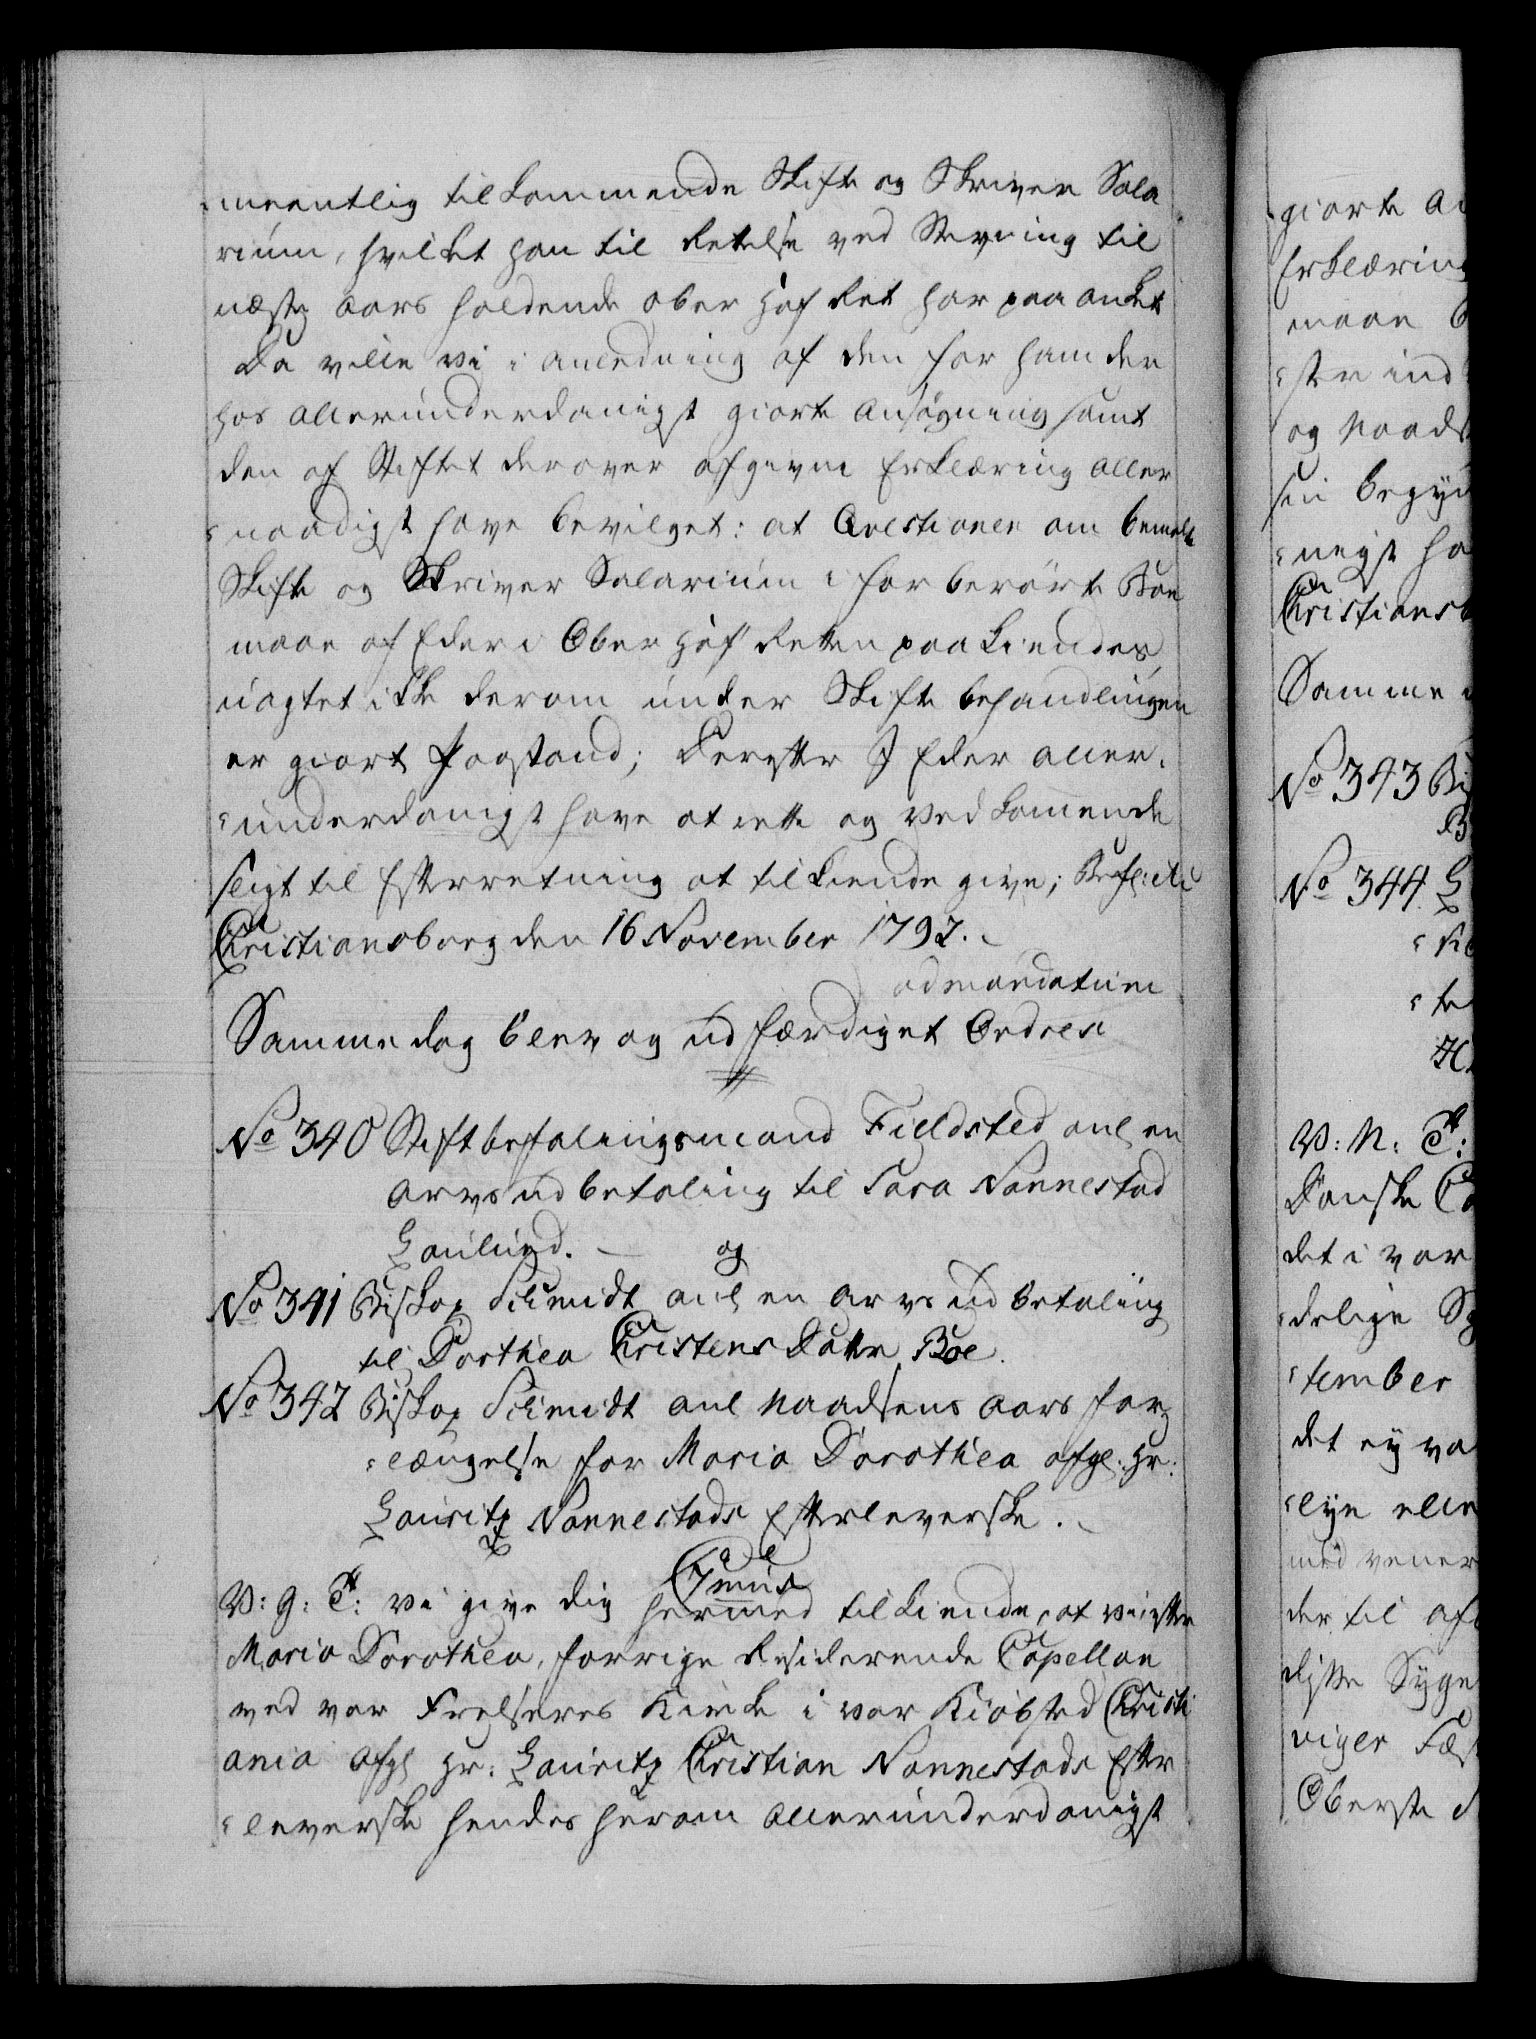 -meentlig tilkommende Skifte og Skriver Sala
rium, hvilket han til Rettelse ved Stevning til
næste aars holdende Ober Hof Ret har paaanket
Da ville vi i anledning af den for ham der
hos allerunderdanigst giorte Ansøgning samt
den af Stiftet derover afgivne Erklæring aller
-naadigst have bevilget: at Qvestionen om bemelte
Skifte og Skriver Salarium i forberørte Boe
maae af Eder i Ober Hof Retten paakiendes,
uagtet ikke derom under Skifte behandlingen
er giort Paastand; Derefter I Eder aller-
-underdanigst have at rette og vedkommende
sligt til Efterretning at tilkiende give; Befl: etc
Christiansborg den 16 November 1792.
ad mandatum
Samme dag blev og udfærdiget Ordres
No 340 Stiftbefalingsmand Fieldsted anl en
Arvs udbetaling til Sara Nannestad
Laulund. — og
No 341 Biskop Schmidt anl en Arvs udbetaling
til Dorthea Christens Datter Boe.
No 342 Biskop Schmidt anl Naadsens Aars for
-længelse for Maria Dorothea afgl. Hr:
Lauritz Nannestads Efterleverske.
V: g: T: Vi give dig hermed tilkiende, at vi efter
Maria Dorothea, forrige Residerende Capellan
ved vor Frelseres Kirke i vor Kiøbsted Christi
ania afgl Hr: Lauritz Christian Nannestads Efter
-leverske hendes herom allerunderdanigst
giorte
Erklæring
maae
og Naads
Christiansb
Samme
No 343 Bi
No 344 L
V: N: T:
Danske Ca
det i vor
-delige Sy
-tember
det ey va
der til
Oberste